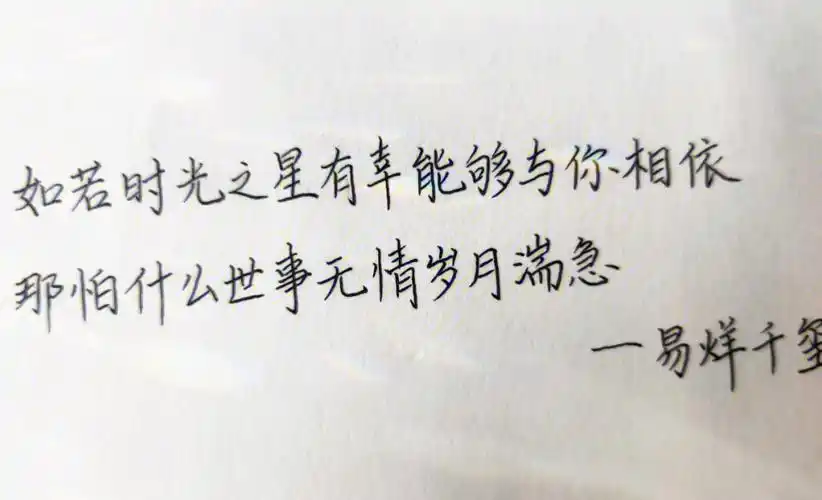 如若时光之星有幸能够与你相依
那怕什么世事无情岁月湍急
一易烊千玺